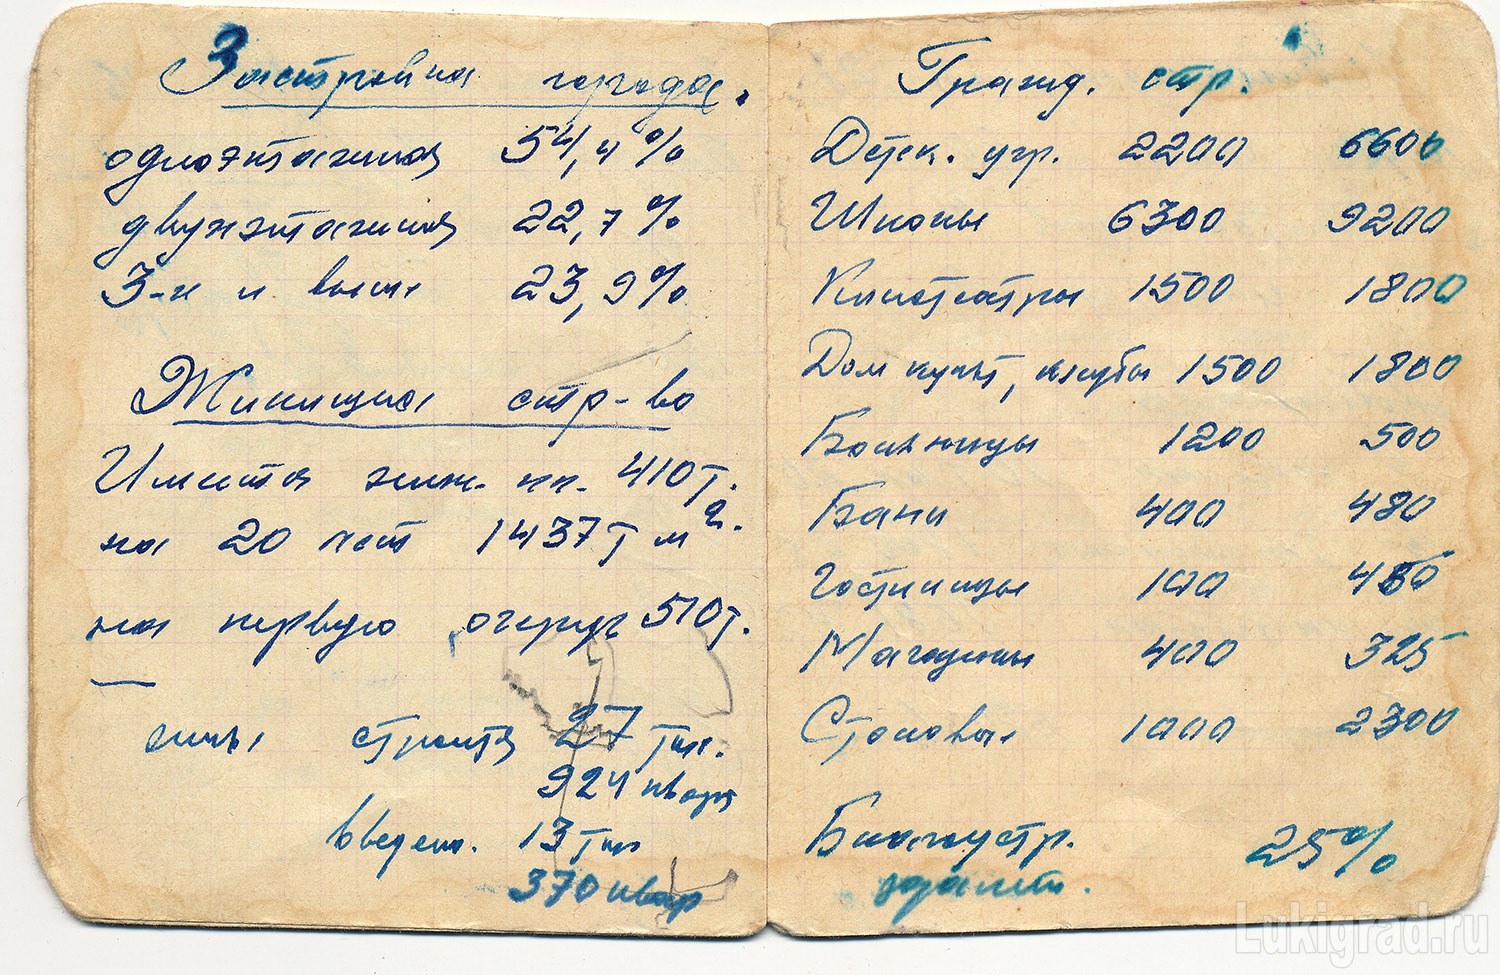 Застройка города.
одноэтажная 54,4%
двухэтажная 22,7%
3-х и выше 23,9%
Жилищное стр-во
Имеется жил. пл. 410 т.
на 20 лет 1437 т м².
на первую очередь 510 т.
строится 27 тыс.
924 кварт
введено. 13 тыс
370 квар
Гражд. стр.
Детск. учр. 2200 6600
Школы 6300 9200
Кинотеатры 1500 1800
Дом культ, клубы 1500 1800
Больницы 1200 500
Бани 400 480
Гостиницы 100 450
Магазины 400 325
Столовые 1000 2300
Благоустр. 25%
Lukigrad.ru